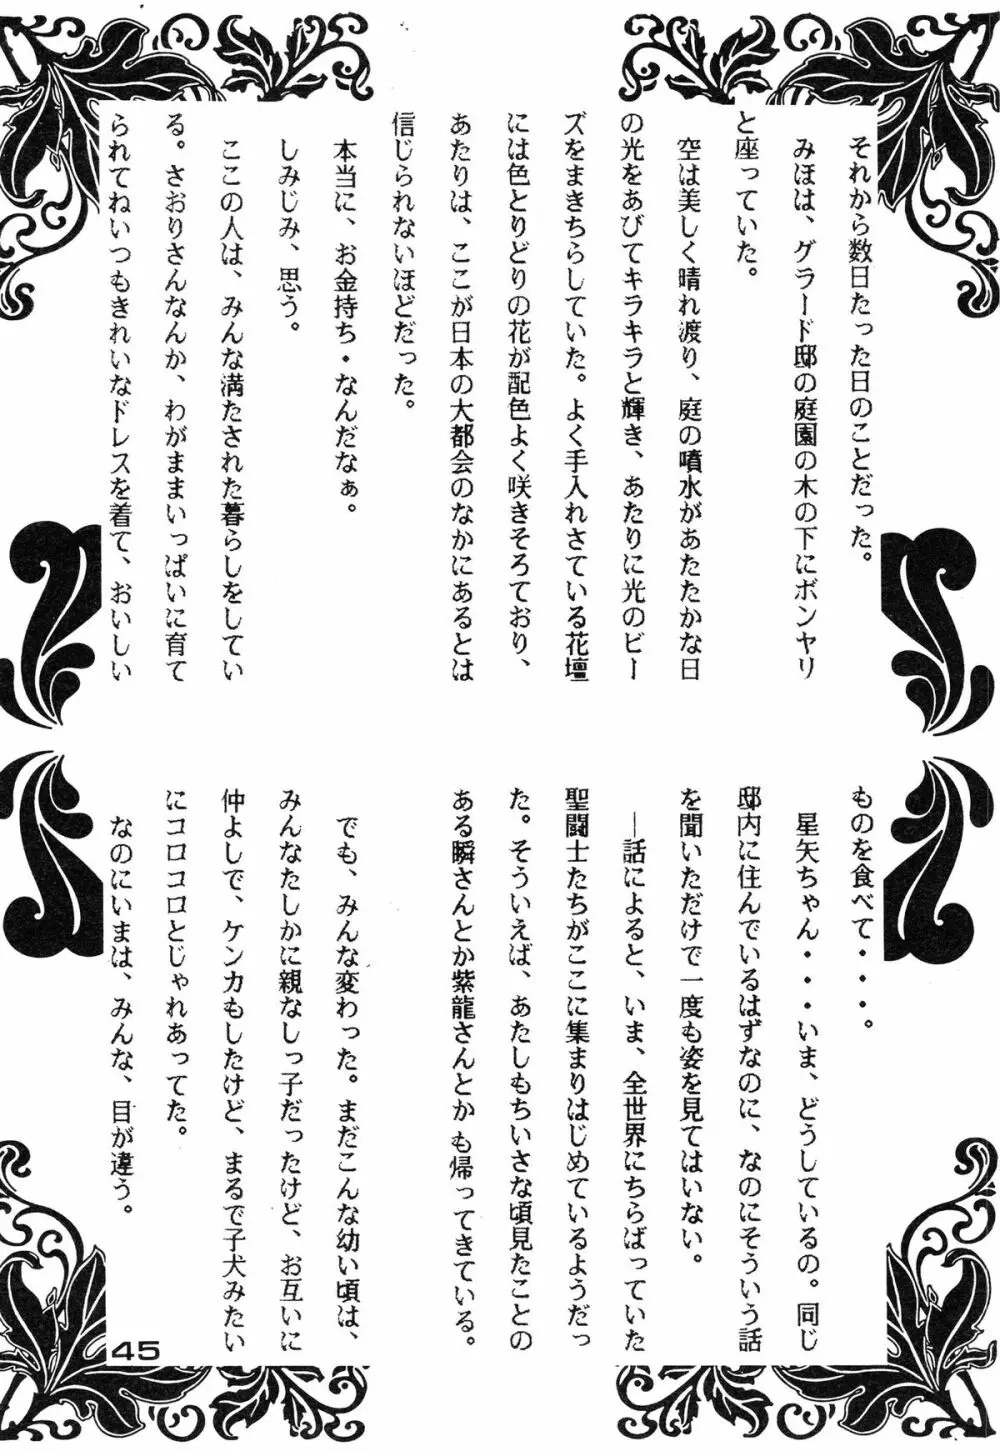 それから数日たった日のことだった。
みほは、グラード邸の庭園の木の下にボンヤリ
と座っていた。
空は美しく晴れ渡り、庭の噴水があたたかな日
の光をあびてキラキラと輝き、あたりに光のビー
ズをまきちらしていた。よく手入れさている花壇
には色とりどりの花が配色よく咲きそろており、
あたりは、ここが日本の大都会のなかにあるとは
信じられないほどだった。
本当に、お金持ち・なんだなぁ。
しみじみ、思う。
ここの人は、みんな満たされた暮らしをしてい
る。さおりさんなんか、わがままいっぱいに育て
られてねいつもきれいなドレスを着て、おいしい
ものを食べて・・・・。
星矢ちゃん・・・いま、どうしているの。同じ
邸内に住んでいるはずなのに、なのにそういう話
を聞いただけで一度も姿を見てはいない。
―話によると、いま、全世界にちらばっていた
聖闘士たちがここに集まりはじめているようだっ
た。そういえば、あたしもちいさな頃見たことの
ある瞬さんとか紫龍さんとかも帰ってきている。
でも、みんな変わった。まだこんな幼い頃は、
みんなたしかに親なしっ子だったけど、お互いに
仲よしで、ケンカもしたけど、まるで子犬みたい
にコロコロとじゃれあってた。
なのにいまは、みんな、目が違う。
45